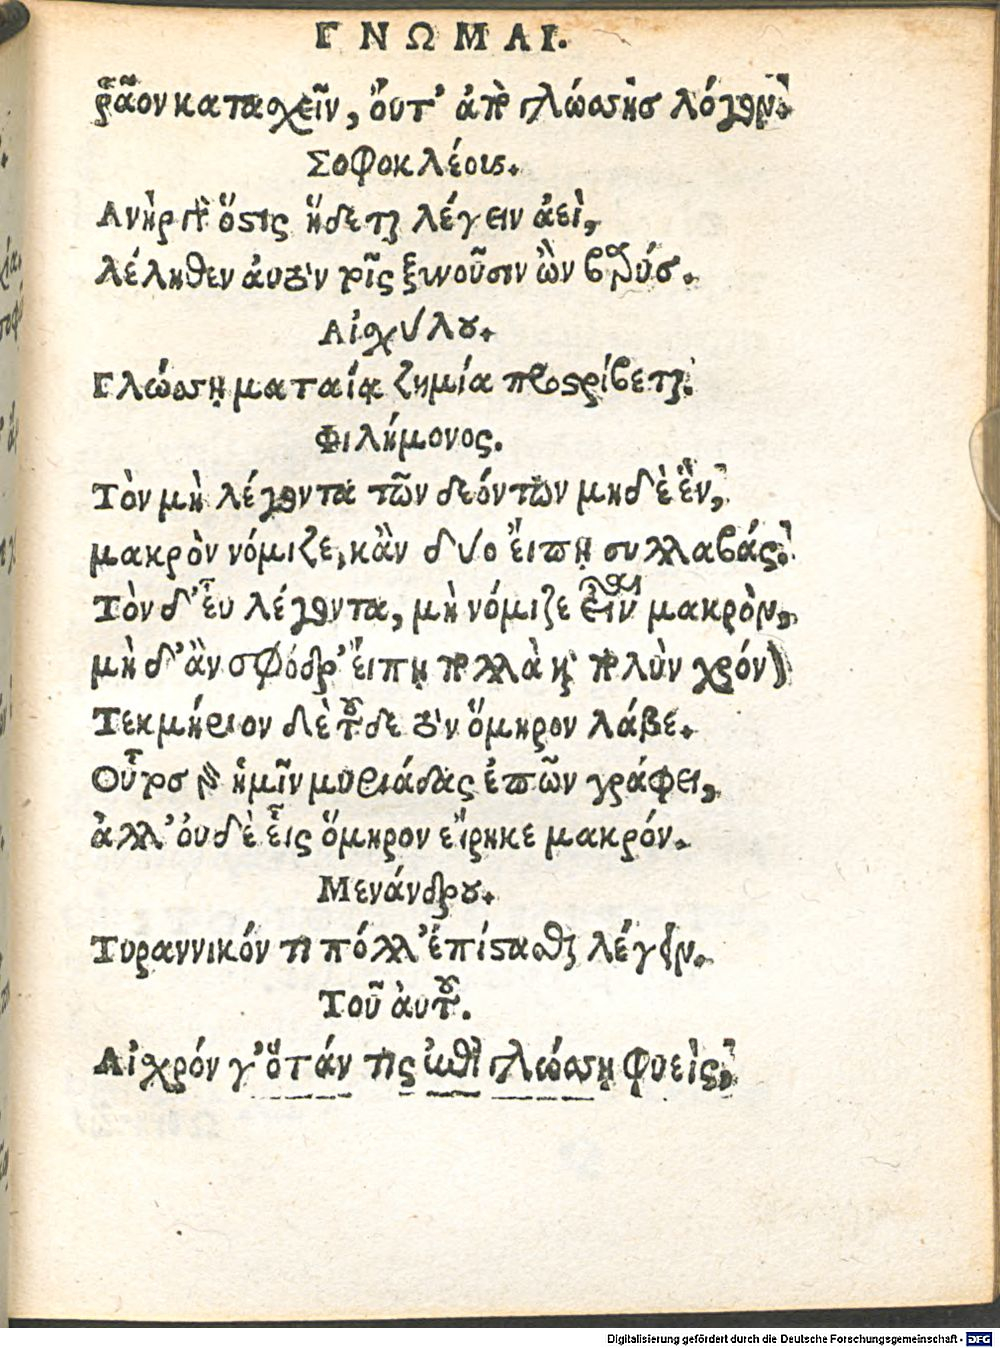 ΓΝΩΜΑΙ.
ῥᾷον κατασχεῖν, ὄυτ' ἀπὸ γλώσσης λόγον.
Σοφοκλέους.
Ανὴρ γὰρ ὅστις ἥδεται λέγειν ἀεὶ,
λέληθεν ἁυτὸν τοῖς ξυνοῦσιν ὢν βαρύς.
Αἰσχύλου.
Γλώσσῃ ματαίᾳ ζημία προστρίβεται.
Φιλήμονος.
Τὸν μὴ λέγοντα τῶν δεόντων μηδὲ ἓν,
μακρὸν νόμιζε, κἂν δύο ἔιπῃ συλλαβάς.
Τὸν δ' ἐῦ λέγοντα, μὴ νόμιζε εἶναι μακρὸν,
μὴ δ' ἂν σφόδρ' ἔιπῃ πολλὰ καὶ πολὺν χρόνον
Τεκμήριον δὲ τοῦδε τὸν ὅμηρον λάβε.
Οὗτος γὰρ ἡμῖν μυριάδας ἐπῶν γράφει,
ἀλλ' ὀυδὲ ἐῖς ὅμηρον εἴρηκε μακρόν.
Μενάνδρου.
Τυραννικόν τι πόλλ' ἐπίστασθαι λέγειν.
Τοῦ ἀυτοῦ.
Αἰσχρόν γ' ὅτάν τις ἐπὶ γλώσσῃ φυεὶς,
Digitalisierung gefördert durch die Deutsche Forschungsgemeinschaft - DFG